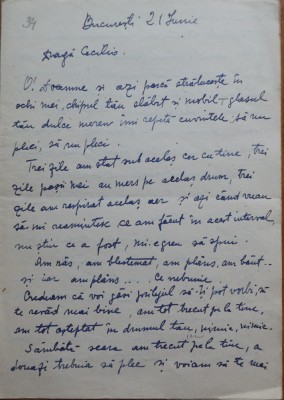 34
București 21 Iunie
Dragă Cecilia.
O! Doamne și azi parcă strălucește în
ochi mei, chipul tău slăbit și mobil, glasul
tău dulce mereu îmi repetă cuvintele, să nu
pleci, să nu pleci.
Trei zile am stat sub acelaș cer cu tine, trei
zile pașii mei au mers pe acelaș drum, trei
zile am respirat acelaș aer și azi când vreau
să-mi reamintesc ce am făcut în acest interval,
nu știu ce a fost, mi-e greu să spui.
Am râs, am blestemat, am plâns, am băut..
și iar am plâns .... Ce nebunie.
Credeam că voi găsi prilejul să-ți pot vorbi, să
te revăd mai bine, am tot trecut pe la tine,
am tot așteptat în drumul tău, nimic, nimic.
Sâmbătă seara am trecut pe la tine, a
doua zi trebuia să plec și voiam să te mai